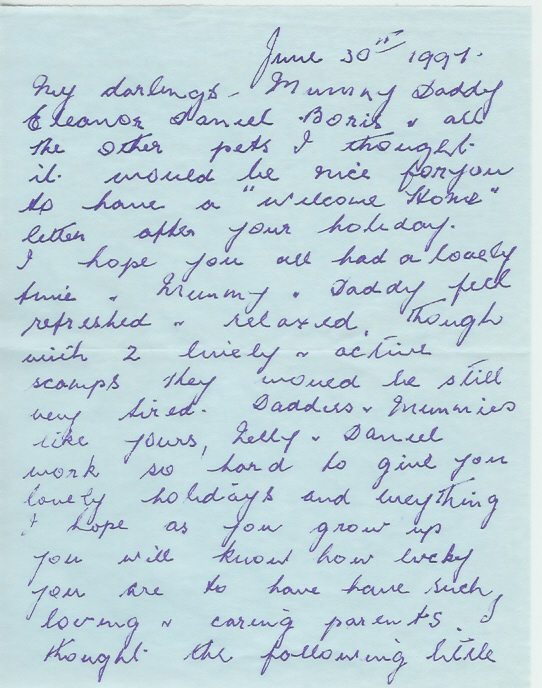 June 30th 1997.
My darlings - Mummy Daddy
Eleanor Daniel Boris & all
the other pets I thought
it would be nice for you
to have a "Welcome Home"
letter after your holiday.
I hope you all had a lovely
time & Mummy & Daddy feel
refreshed & relaxed, though
with 2 lively & active
scamps they would be still
very tired. Daddies & Mummies
like yours, Nelly & Daniel
work so hard to give you
lovely holidays and everything
I hope as you grow up
you will know how lucky
you are to have have such
loving & caring parents. I
thought the following little